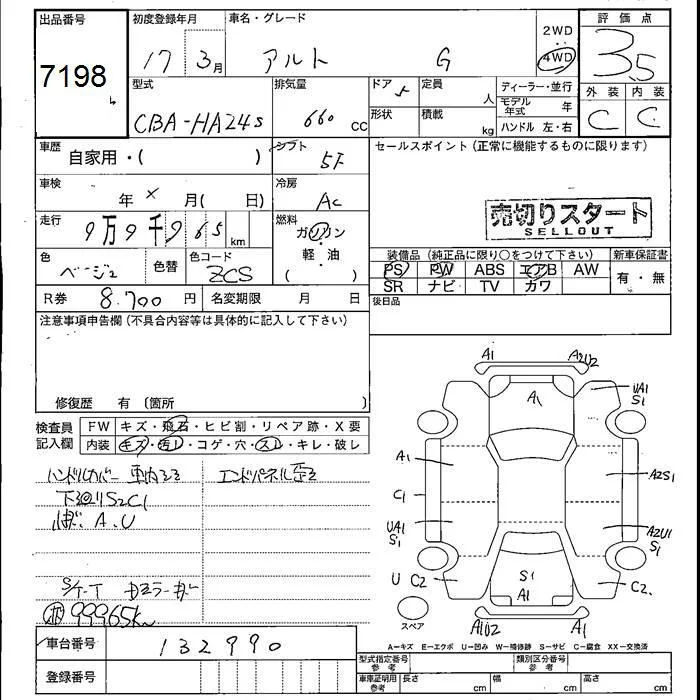 出品番号 初度登録年月 車名・グレード 評価点
7198
17 3月 アルト G 2WD 4WD 3.5
型式 排気量 ドア 5 定員 人 ディーラー・並行 外装 内装
CBA-HA24S 660 CC 形状 積載 kg モデル年式 年 C C
ハンドル 左・右
車歴 自家用・( ) シフト 5F セールスポイント(正常に機能するものに限ります)
車検 年 × 月( 日) 冷房 AC
売切りスタート
SELLOUT
走行 9万9千965 km 燃料 ガソリン・軽・油 ( )
色 ベージュ 色替 色コード ZCS
装備品(純正品に限り○をつけて下さい) 新車保証書
PS PW ABS エアB AW 有・無
SR ナビ TV カワ
R券 8.700 円 名変期限 月 日 後日品
注意事項申告欄(不具合内容等は具体的に記入して下さい)
修復歴 有 〔箇所 〕
検査員記入欄 FW キズ・飛石・ヒビ割・リペア跡・X要
内装 キズ・汚レ・コゲ・穴・スレ・キレ・破レ
ハンドルカバー エンドパネル歪ミ
下廻りS2C1
A.U
99965km
車台番号 132990
登録番号
A1 A2U2
A1 UA1 S1
A1 A2S1
C1
UA1 S1 A2U1 S1
U C2 S1 A1 C2
スペア A1U2 A1
A=キズ E=エクボ U=凹み W=補修跡 S=サビ C=腐食 XX=交換済
型式指定番号 参考 類別区分番号 参考
車庫証明用 参考 長さ cm 幅 cm 高さ cm